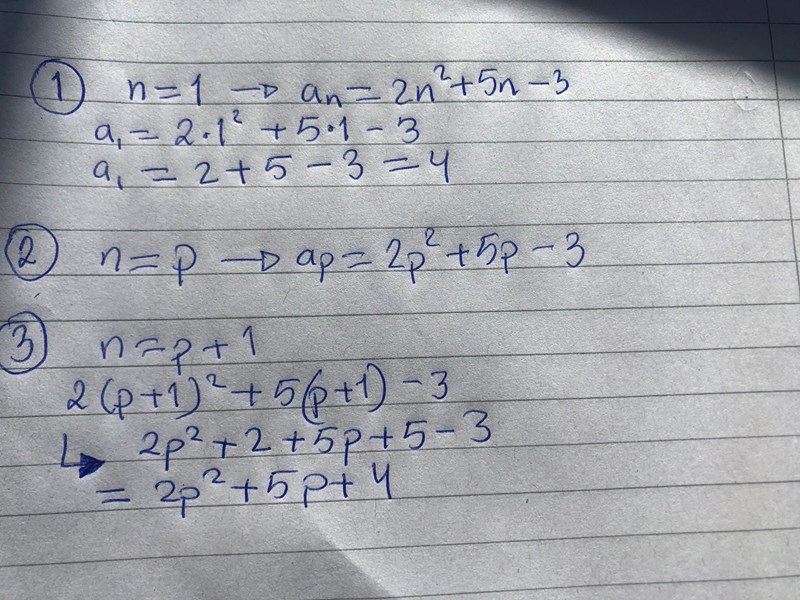 ① n=1 → aₙ = 2n²+5n-3
a₁ = 2·1² + 5·1 - 3
a₁ = 2+5-3=4
② n=p → aₚ = 2p²+5p-3
③ n=p+1
2(p+1)² + 5(p+1) - 3
↳ 2p²+2+5p+5-3
= 2p²+5p+4